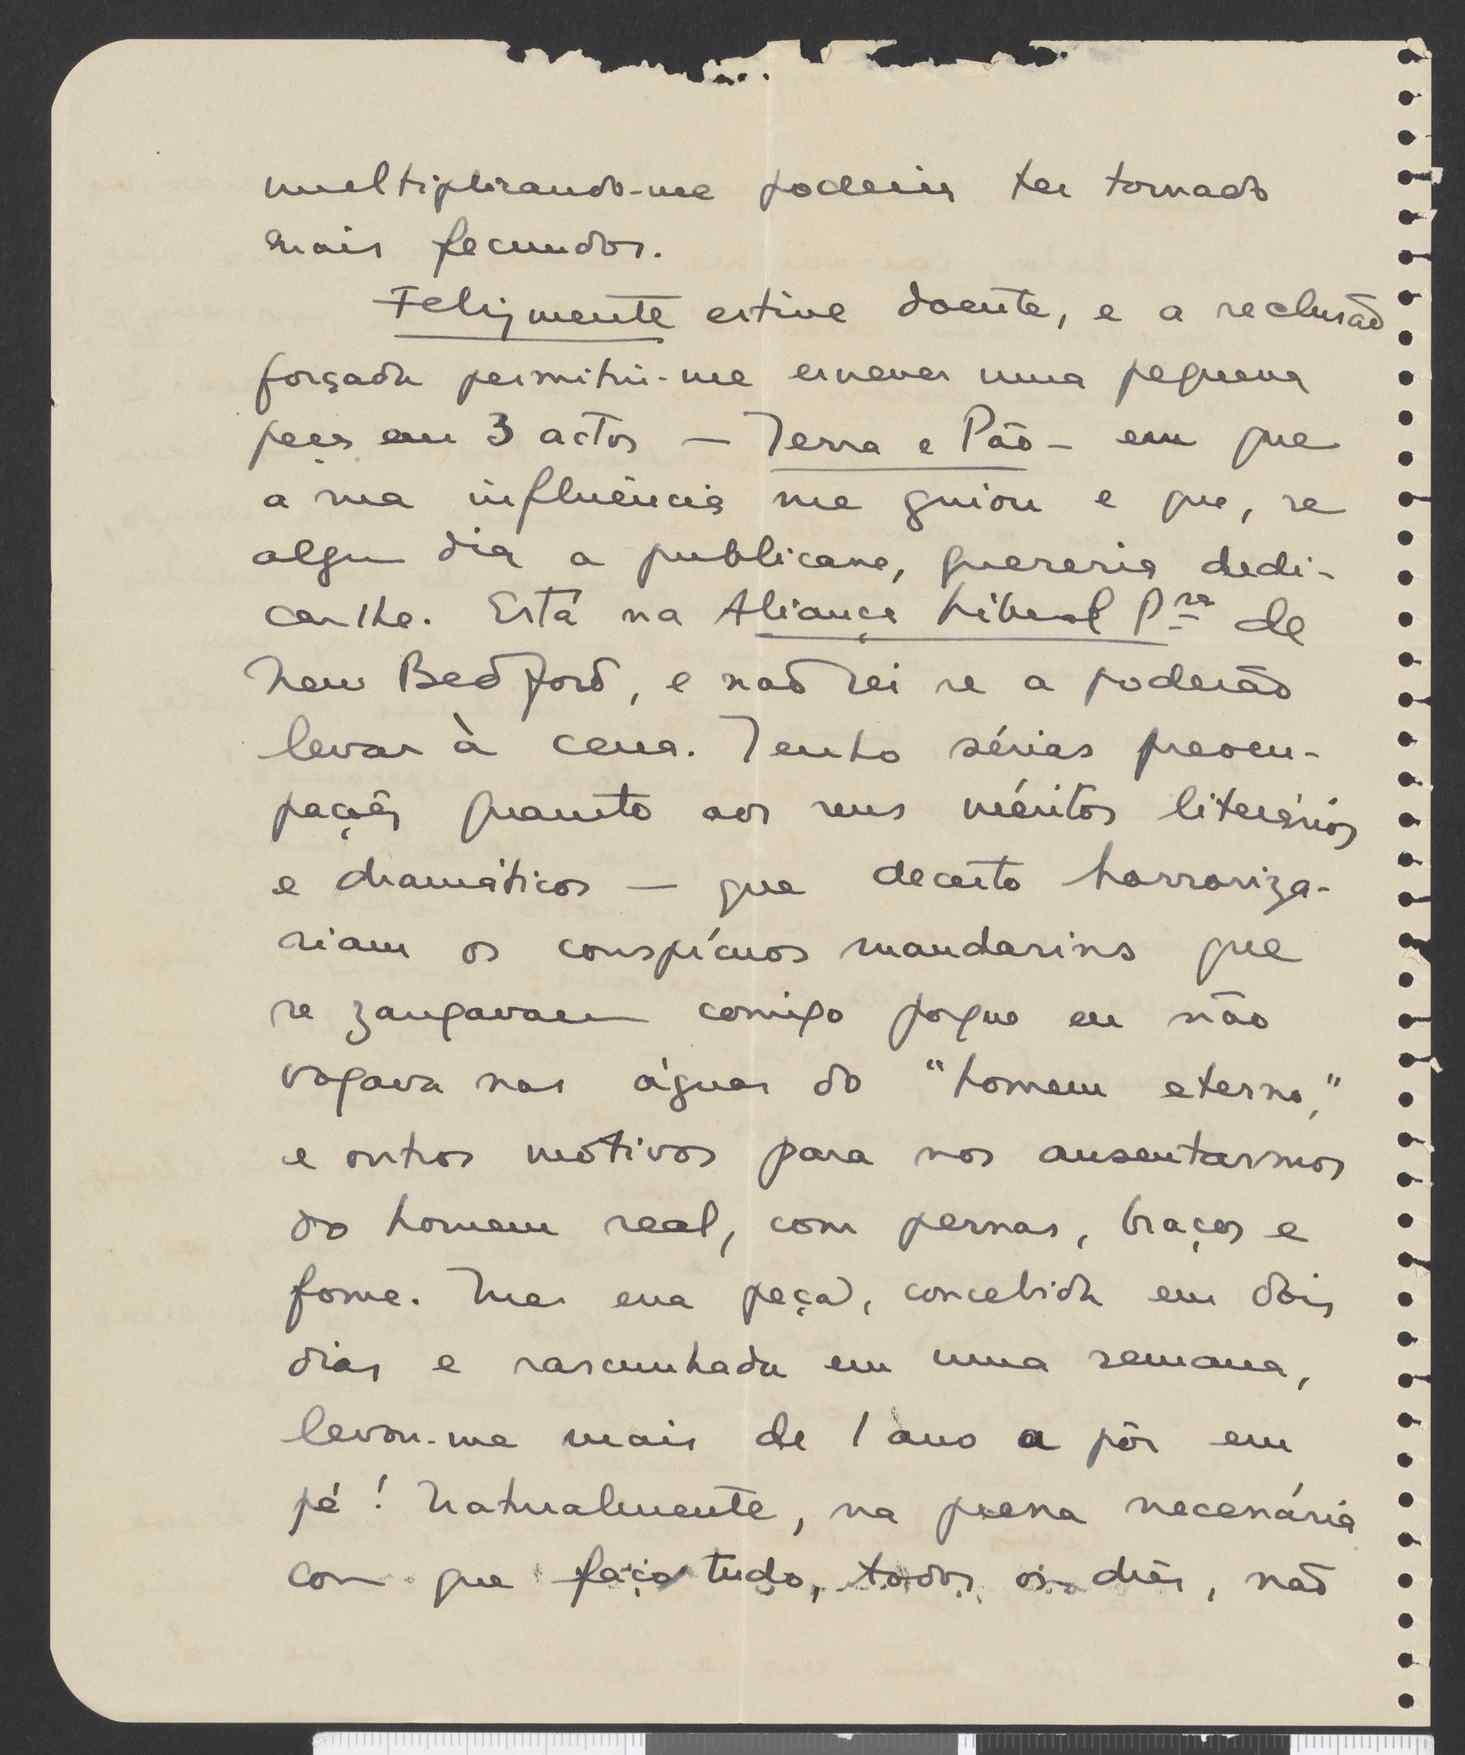 multiplicando-me poderia ter tornado
mais fecundos.
Felizmente estive doente, e a reclusão
forçada permitiu-me escrever uma pequena
peça em 3 actos — Terra e Pão — em que
a sua influência me guiou e que, se
algum dia a publicasse, quereria dedi-
car-lhe. Está na Aliança Liberal Pra de
New Bedford, e não sei se a poderão
levar à cena. Tenho sérias preocu-
pações quanto aos seus méritos literários
e dramáticos — que decerto horroriza-
riam os conspícuos mandarins que
se zangavam comigo porque eu não
vogava nas águas do "homem eterno,"
e outros motivos para nos ausentarmos
do homem real, com pernas, braços e
fome. Mas essa peça, concebida em dois
dias e rascunhada em uma semana,
levou-me mais de 1 ano a pôr em
pé! Naturalmente, na pressa necessária
com que faço tudo, todos os dias, não